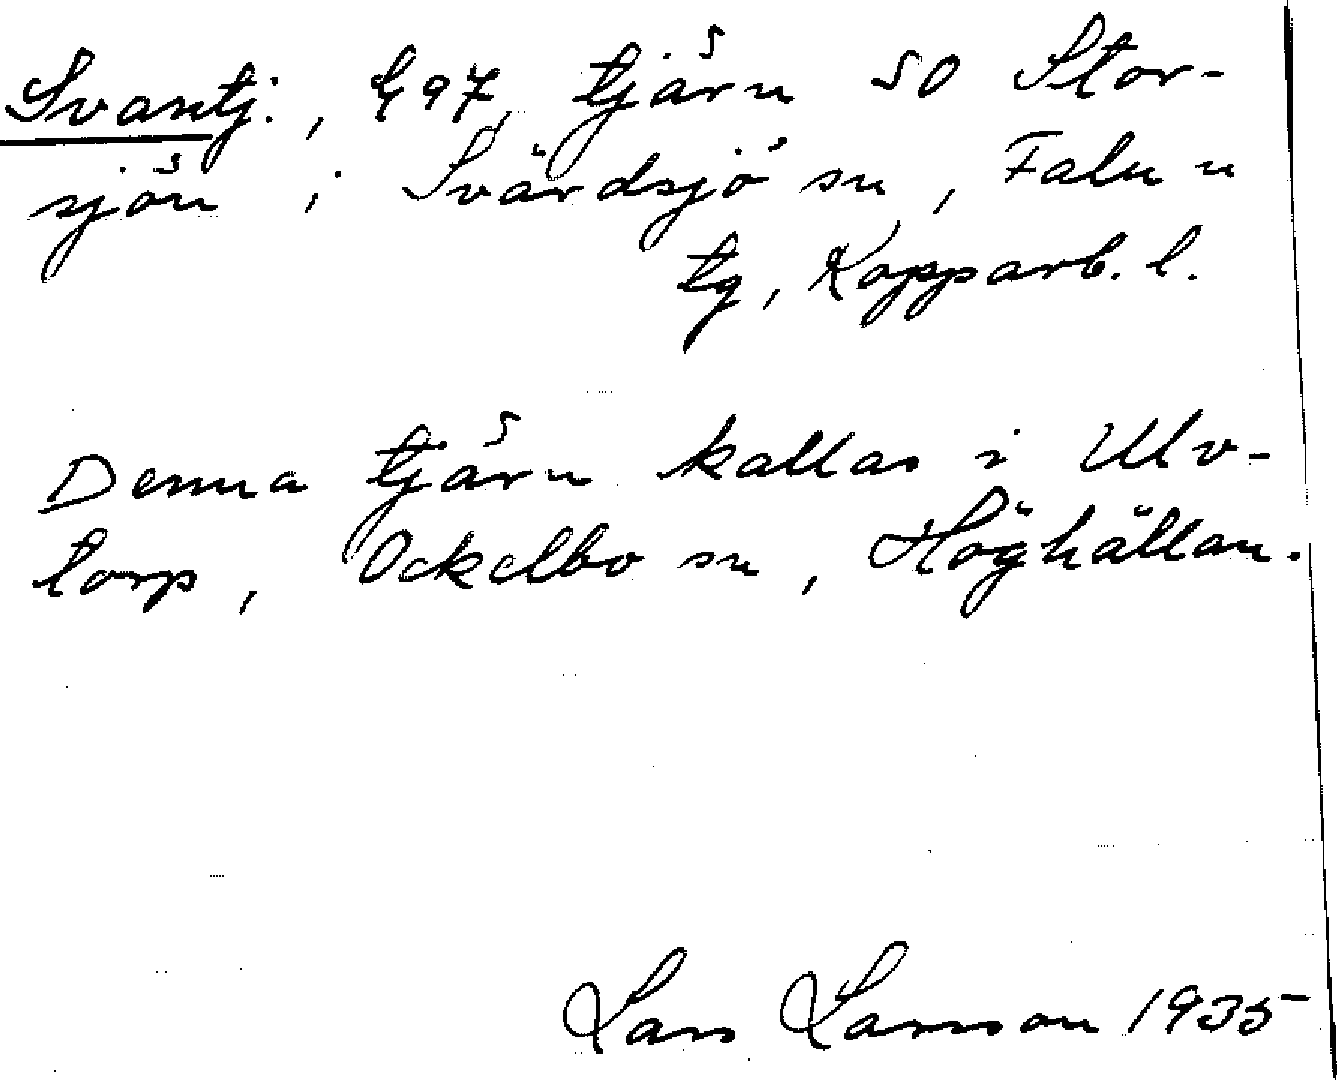 Svantj., G97, tjärn SO Stor-
sjön i Svärdsjö sn, Falu n
tg, Kopparb. l.
Denna tjärn kallas i Ulv-
torp, Ockelbo sn, Höghällan.
Lars Larsson 1935